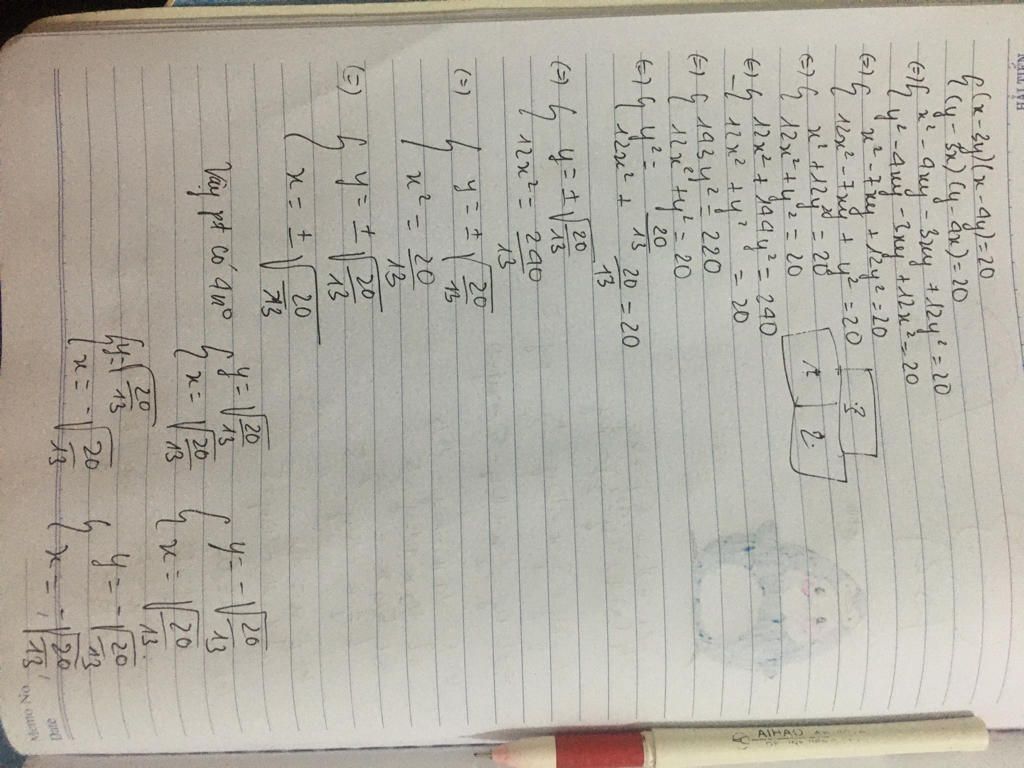 {(x-3y)(x-4y)=20
{(y-3x)(y-4x)=20
(=) { x²-4xy-3xy+12y²=20
{ y²-4xy-3xy+12x²=20
(=) { x²-7xy+12y²=20
{ 12x²-7xy+y²=20
(=) { x²+12y²=20
{ 12x²+y²=20
(=) { 12x²+144y²=240
- { 12x²+y²=20
(=) { 143y²=220
{ 12x²+y²=20
(=) { y²=20/13
{ 12x²+20/13=20
(=) { y=±√20/13
{ 12x²=240/13
(=) { y=±√20/13
{ x²=20/13
(=) { y=±√20/13
{ x=±√20/13
Vậy pt có 4n° { y=√20/13 { y=-√20/13
{ x=√20/13 { x=√20/13
{ y=√20/13 { y=-√20/13
{ x=-√20/13 { x=-√20/13
Memo No.
Date